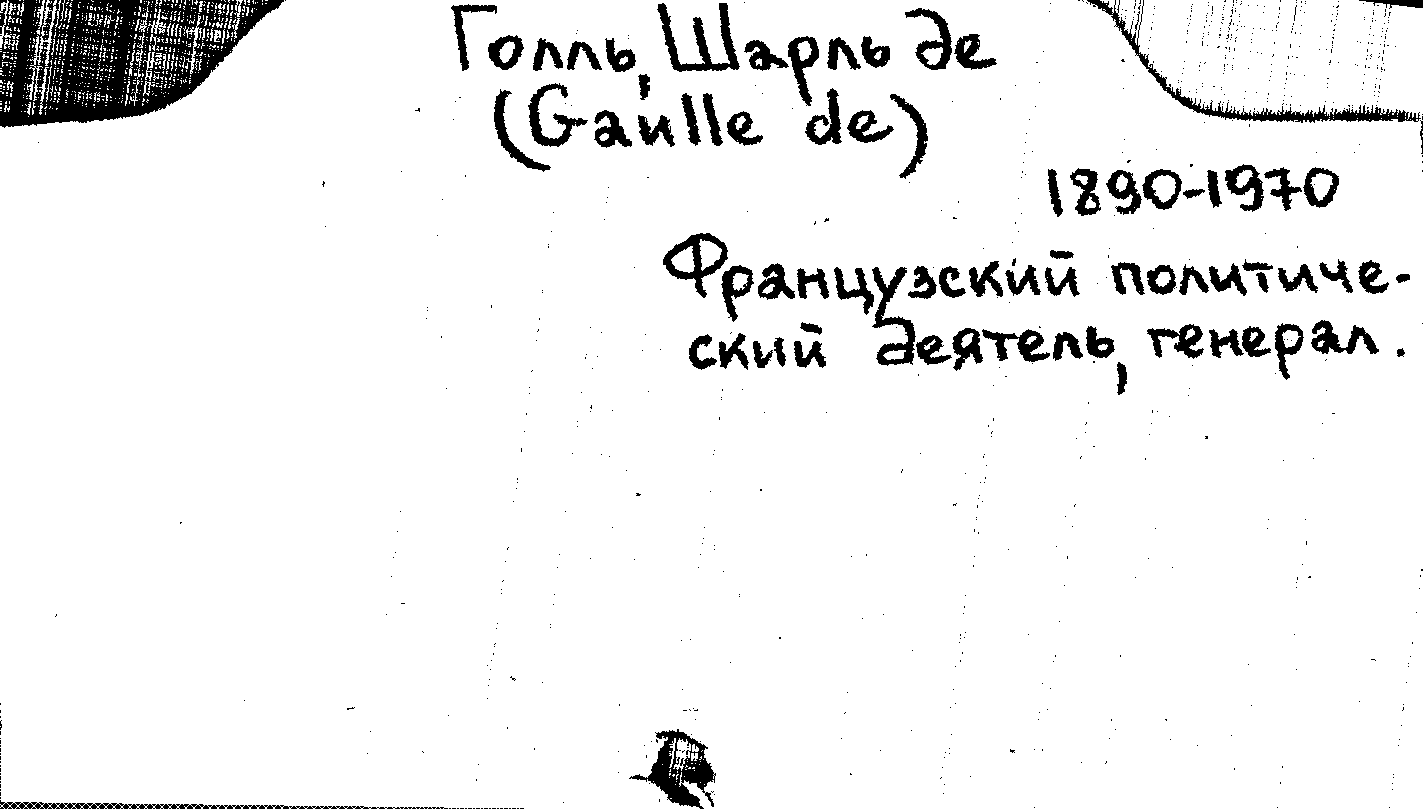 Голль, Шарль де
(Gaulle de)
1890-1970
Французский политиче-
ский деятель, генерал.